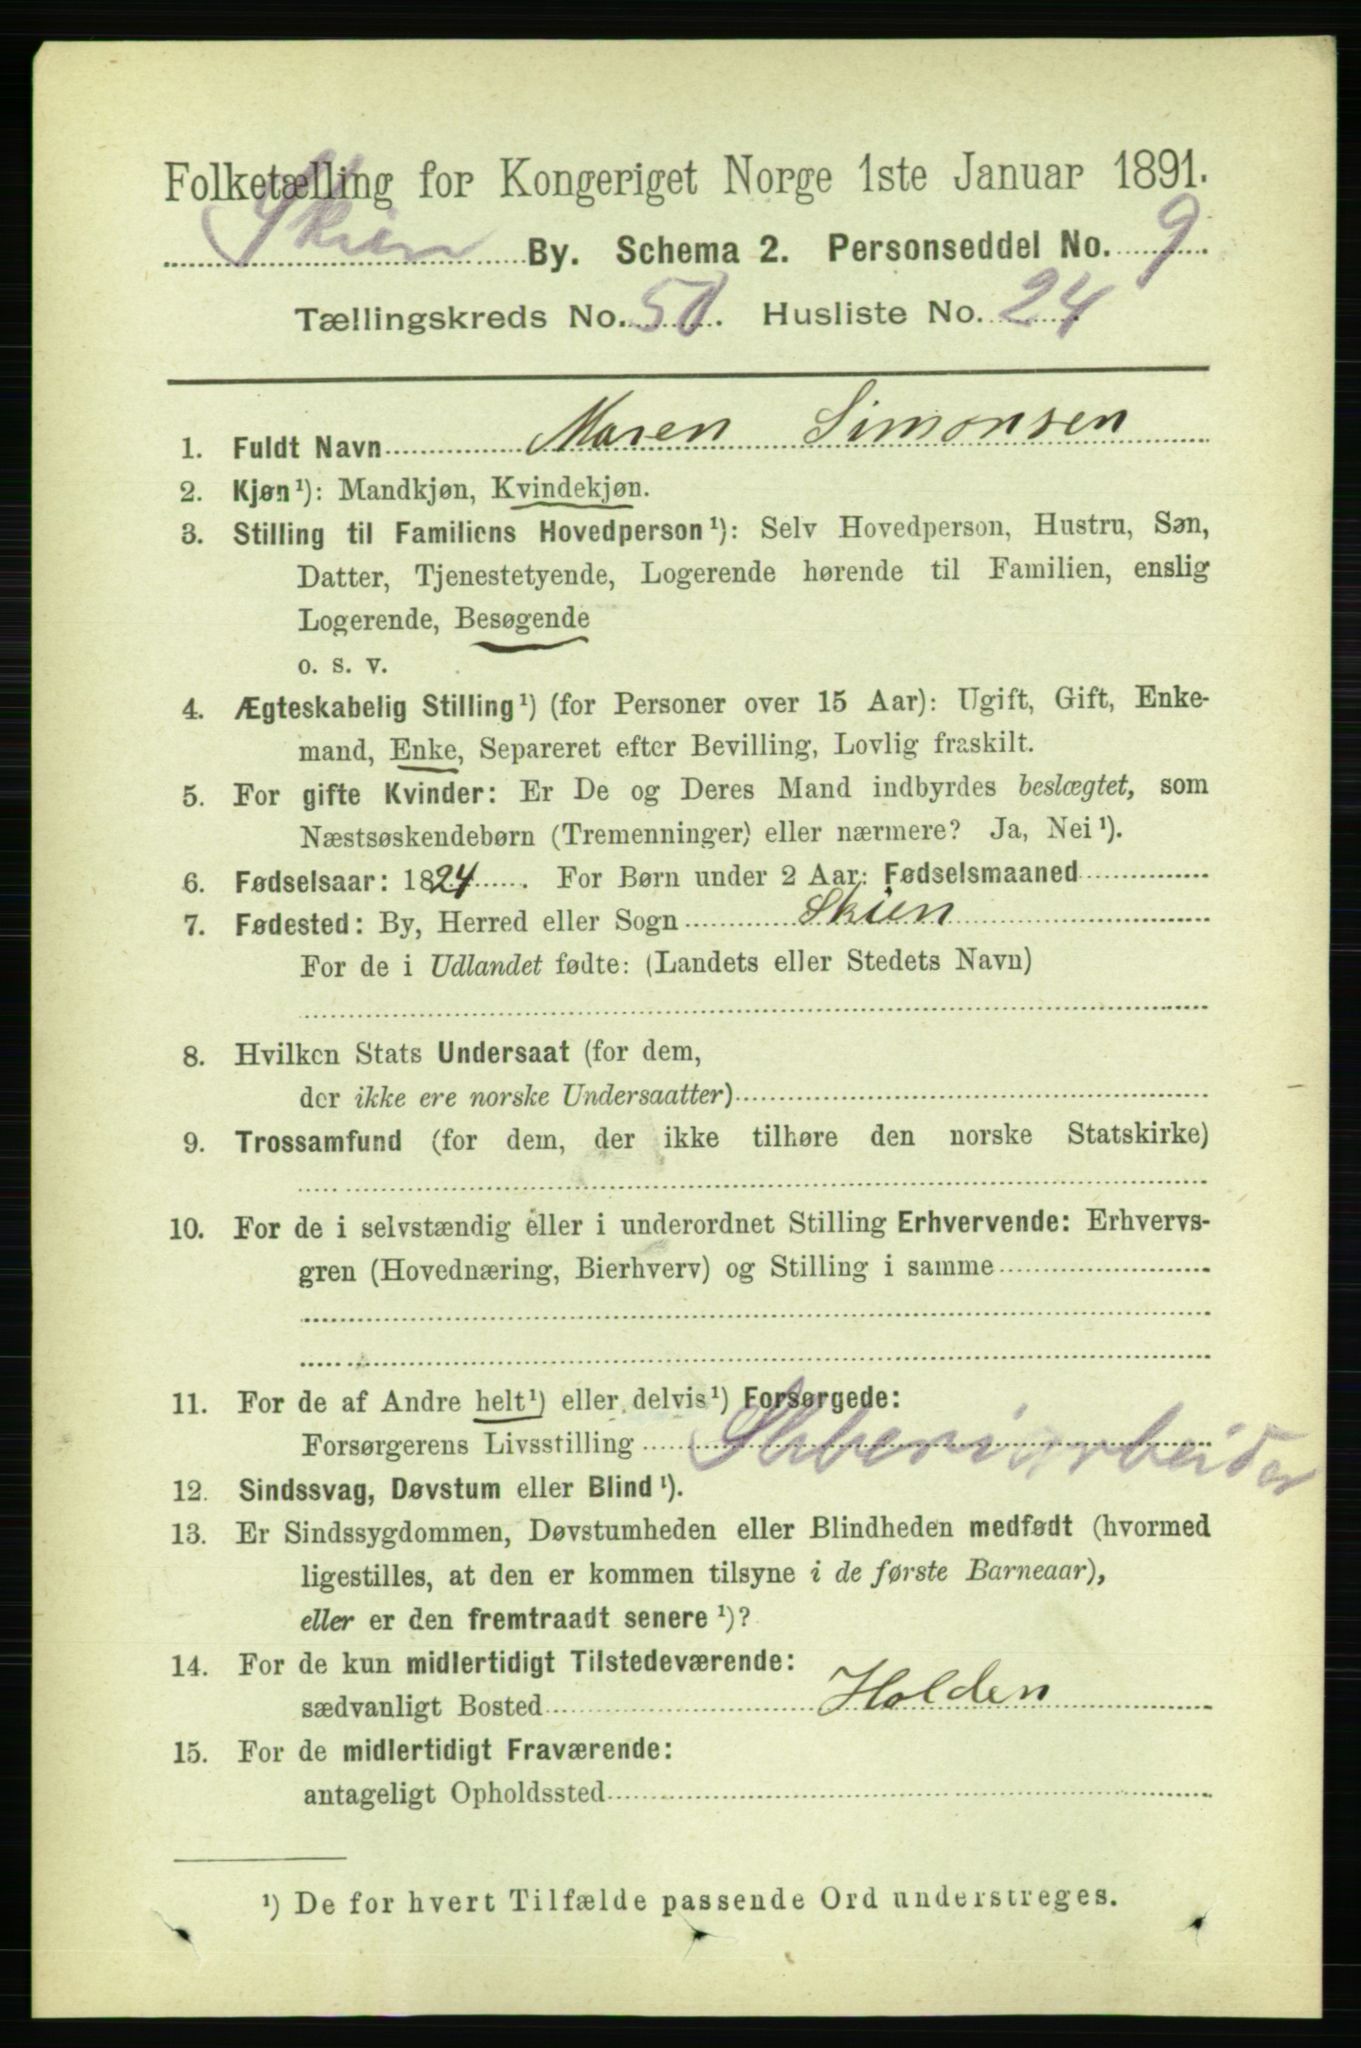 Folketælling for Kongeriget Norge 1ste Januar 1891.
Skien By. Schema 2. Personseddel No. 9
Tællingskreds No. 50. Husliste No. 24
1. Fuldt Navn Maren Simonsen
2. Kjøn¹): Mandkjøn, Kvindekjøn.
3. Stilling til Familiens Hovedperson¹): Selv Hovedperson, Hustru, Søn,
Datter, Tjenestetyende, Logerende hørende til Familien, enslig
Logerende, Besøgende
o. s. v.
4. Ægteskabelig Stilling¹) (for Personer over 15 Aar): Ugift, Gift, Enke-
mand, Enke, Separeret efter Bevilling, Lovlig fraskilt.
5. For gifte Kvinder: Er De og Deres Mand indbyrdes beslægtet, som
Næstsøskendebørn (Tremenninger) eller nærmere? Ja, Nei¹).
6. Fødselsaar: 1824. For Børn under 2 Aar: Fødselsmaaned
7. Fødested: By, Herred eller Sogn Skien
For de i Udlandet fødte: (Landets eller Stedets Navn)
8. Hvilken Stats Undersaat (for dem,
der ikke ere norske Undersaatter)
9. Trossamfund (for dem, der ikke tilhøre den norske Statskirke)
10. For de i selvstændig eller i underordnet Stilling Erhvervende: Erhvervs-
gren (Hovednæring, Bierhverv) og Stilling i samme
11. For de af Andre helt¹) eller delvis¹) Forsørgede:
Forsørgerens Livsstilling
12. Sindssvag, Døvstum eller Blind¹).
13. Er Sindssygdommen, Døvstumheden eller Blindheden medfødt (hvormed
ligestilles, at den er kommen tilsyne i de første Barneaar),
eller er den fremtraadt senere¹)?
14. For de kun midlertidigt Tilstedeværende:
sædvanligt Bosted Holden
15. For de midlertidigt Fraværende:
antageligt Opholdssted
¹) De for hvert Tilfælde passende Ord understreges.